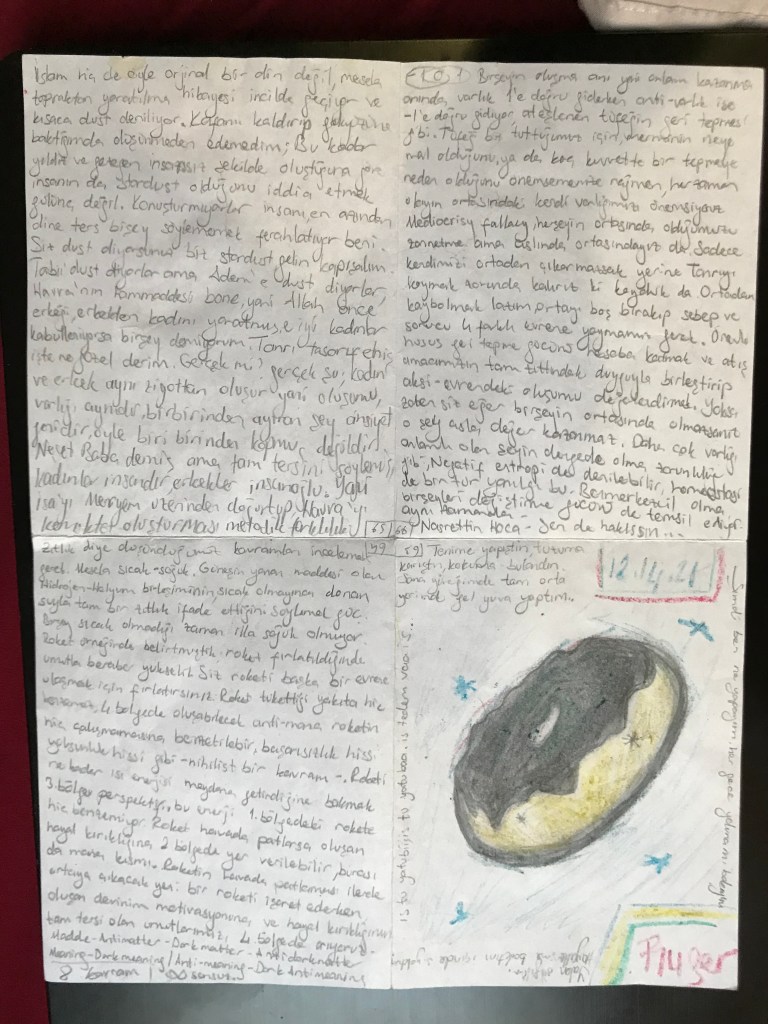 İslam hiç de öyle orjinal bir din değil, mesela
topraktan yaratılma hikayesi incilde geçiyor ve
kısaca dust deniliyor. Kafamı kaldırıp gökyüzüne
baktığımda düşünmeden edemedim; Bu kadar
yıldız ve gezegen insansız şekilde oluştuğuna göre
insanın da stardust olduğunu iddia etmek
gülünç değil. Konuşturmuyorlar insanı, en azından
dine ters bişey söylememek ferahlatıyor beni.
Siz dust diyorsunuz biz stardust gelin kapışalım.
Tabii dust diyorlar ama Adem'e dust diyorlar,
Havva'nın hammaddesi bone, yani Allah önce
erkeği, erkekten kadını yaratmış, e iyi kadınlar
kabulleniyorsa birşey demiyorum. Tanrı tasarruf etmiş
işte ne güzel derim. Gerçek mi? gerçek şu, kadın
ve erkek aynı zigottan oluşur yani oluşumu,
varlığı aynıdır, birbirinden ayıran şey cinsiyet
genidir, öyle biri birinden kopmuş değildir.
Neşet Baba demiş ama tam tersini söylemiş,
kadınlar insandır, erkekler insanoğlu. Yani
İsa'yı Meryem üzerinden doğurtup, Havva'yı
erkekten oluşturması metodik farklılık 65
-1 0 1 Birşeyin oluşma anı yani anlam kazanma
anında, varlık 1'e doğru giderken anti-varlık ise
-1'e doğru gidiyor, ateşlenen tüfeğin geri tepmesi
gibi. Tüfeği biz tuttuğumuz için, merminin neye
mal olduğunu, ya da kaç kuvvette bir tepmeye
neden olduğunu önemsememize rağmen, her zaman
olayın ortasındaki kendi varlığımızı önemsiyoruz
Mediocrisy fallacy, herşeyin ortasında olduğumuzu
zannetme ama aslında ortasındayız da. Sadece
kendimizi ortadan çıkarmazsak yerine Tanrıyı
koymak zorunda kalırız ki kayıplık da. Ortadan
kaybolmak lazım, ortayı boş bırakıp sebep ve
sonucu 4 farklı evrene yaymamız gerek. Önemli
husus geri tepme gücünü hesaba katmak ve atış
amacımızın tam zıttındaki duyguyla birleştirip
aksi-evrendeki oluşumu değerlendirmek. Yoksa
zaten siz eğer birşeyin ortasında olmazsanız
o şey asla değer kazanmaz. Daha çok varlığı
anlamlı olan şeyin dengede olma zorunluluğu
gibi, Negatif entropi de denilebilir, homeostasi
de bir tür yanılgı bu. Benmerkezcil olma,
aynı zamanda birşeyleri değiştirme gücünü de temsil ediyor.
66 Nasrettin Hoca - Sen de haklısın...
Zıtlık diye düşündüğümüz kavramları incelemek
gerek. Mesela sıcak-soğuk. Güneşin yanan maddesi olan
Hidrojen-Helyum birleşiminin sıcak olmayınca donan
suyla tam bir zıtlık ifade ettiğini söylemek güç.
Birşey sıcak olmadığı zaman illa soğuk olmuyor.
Roket örneğinde belirtmiştik roket fırlatıldığında
umutla beraber yükselir. Siz roketi başka bir evrene
ulaşmak için fırlatırsınız. Roket tükettiği yakıta hiç
benzemez, 4. bölgede oluşabilecek anti-mana roketin
hiç çalışmamasına benzetilebilir, başarısızlık hissi
yoksunluk hissi gibi -nihilist bir kavram-. Roketi
ne kadar ısı enerjisi meydana getirdiğine bakmak
3. bölge perspektifi, bu enerji 1. bölgedeki rokete
hiç benzemiyor. Roket havada patlarsa oluşan
hayal kırıklığına 2. bölgede yer verilebilir, burası
da mana kısmı. Roketin havada patlaması ilerde
ortaya çıkacak yeni bir roketi işaret ederken
oluşan devinim motivasyonunu, ve hayal kırıklığının
tam tersi olan umutlarımızı, 4. bölgede arıyoruz.
Madde-Antimatter-Dark matter-Antidarkmatter
Meaning-Darkmeaning/Anti-meaning-Dark Antimeaning
8 kavram 1 sonsuz.
59) Tenime yapıştın, tuzuma
karıştın, kokuma bulandın.
Sana yüreğimde tam orta
yerinde yel yuva yaptım.
12.14.21
Şimdi ben ne yapayım her gece yelmanı kolayını
Pluger